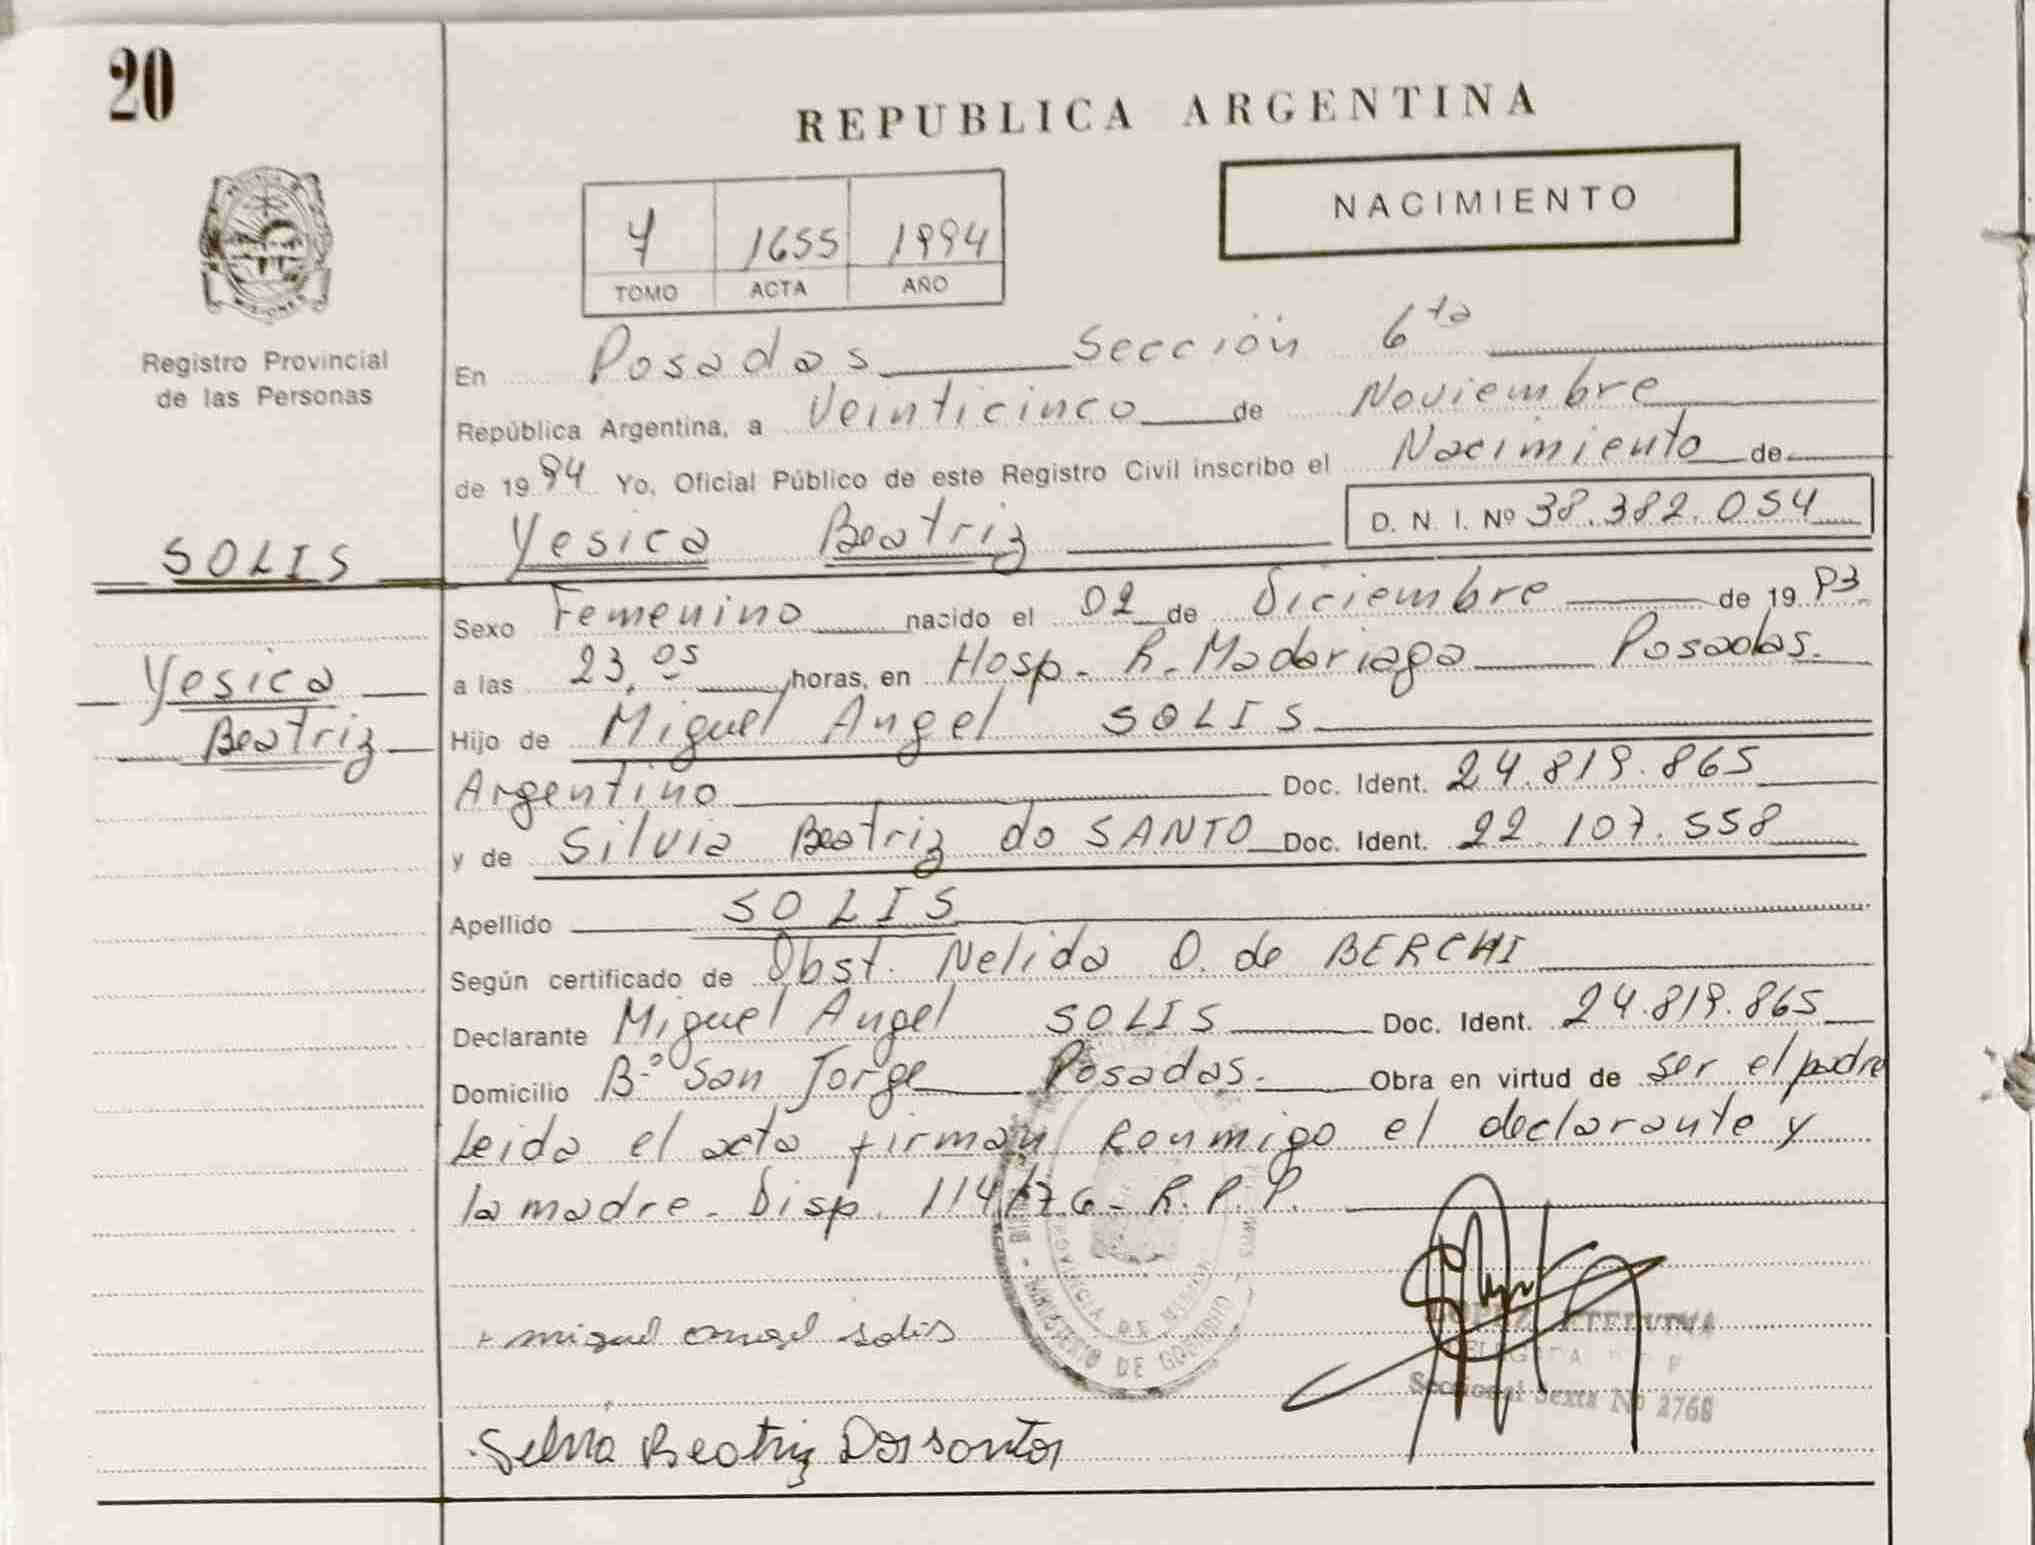 20
REPUBLICA ARGENTINA
NACIMIENTO
1655 1994
TOMO ACTA AÑO
Registro Provincial
de las Personas
En Posadas Sección 6ta
República Argentina, a Veinticinco de Noviembre
de 1994 Yo, Oficial Público de este Registro Civil inscribo el Nacimiento de
D. N. I. Nº 38.382.054
SOLIS
Yesica Beatriz
Sexo Femenino nacido el 02 de Diciembre de 1993
Yesica
Beatriz
a las 23,05 horas, en Hosp. R. Madariaga Posadas.
Hijo de Miguel Angel SOLIS
Argentino Doc. Ident. 24.819.865
y de Silvia Beatriz do SANTO Doc. Ident. 22.107.558
Apellido SOLIS
Según certificado de Obst. Nelida O. de BERCHI
Declarante Miguel Angel SOLIS Doc. Ident. 24.819.865
Domicilio Bº San Jorge Posadas. Obra en virtud de ser el padre
Leida el acta firman konmigo el declarante y
la madre. Disp. 114/76 - R.P.P.
miguel angel solis
MINISTERIO DE GOBIERNO
PROVINCIA DE
Seccional Sexta Nº 2768
Selvia Beatriz Dossantos